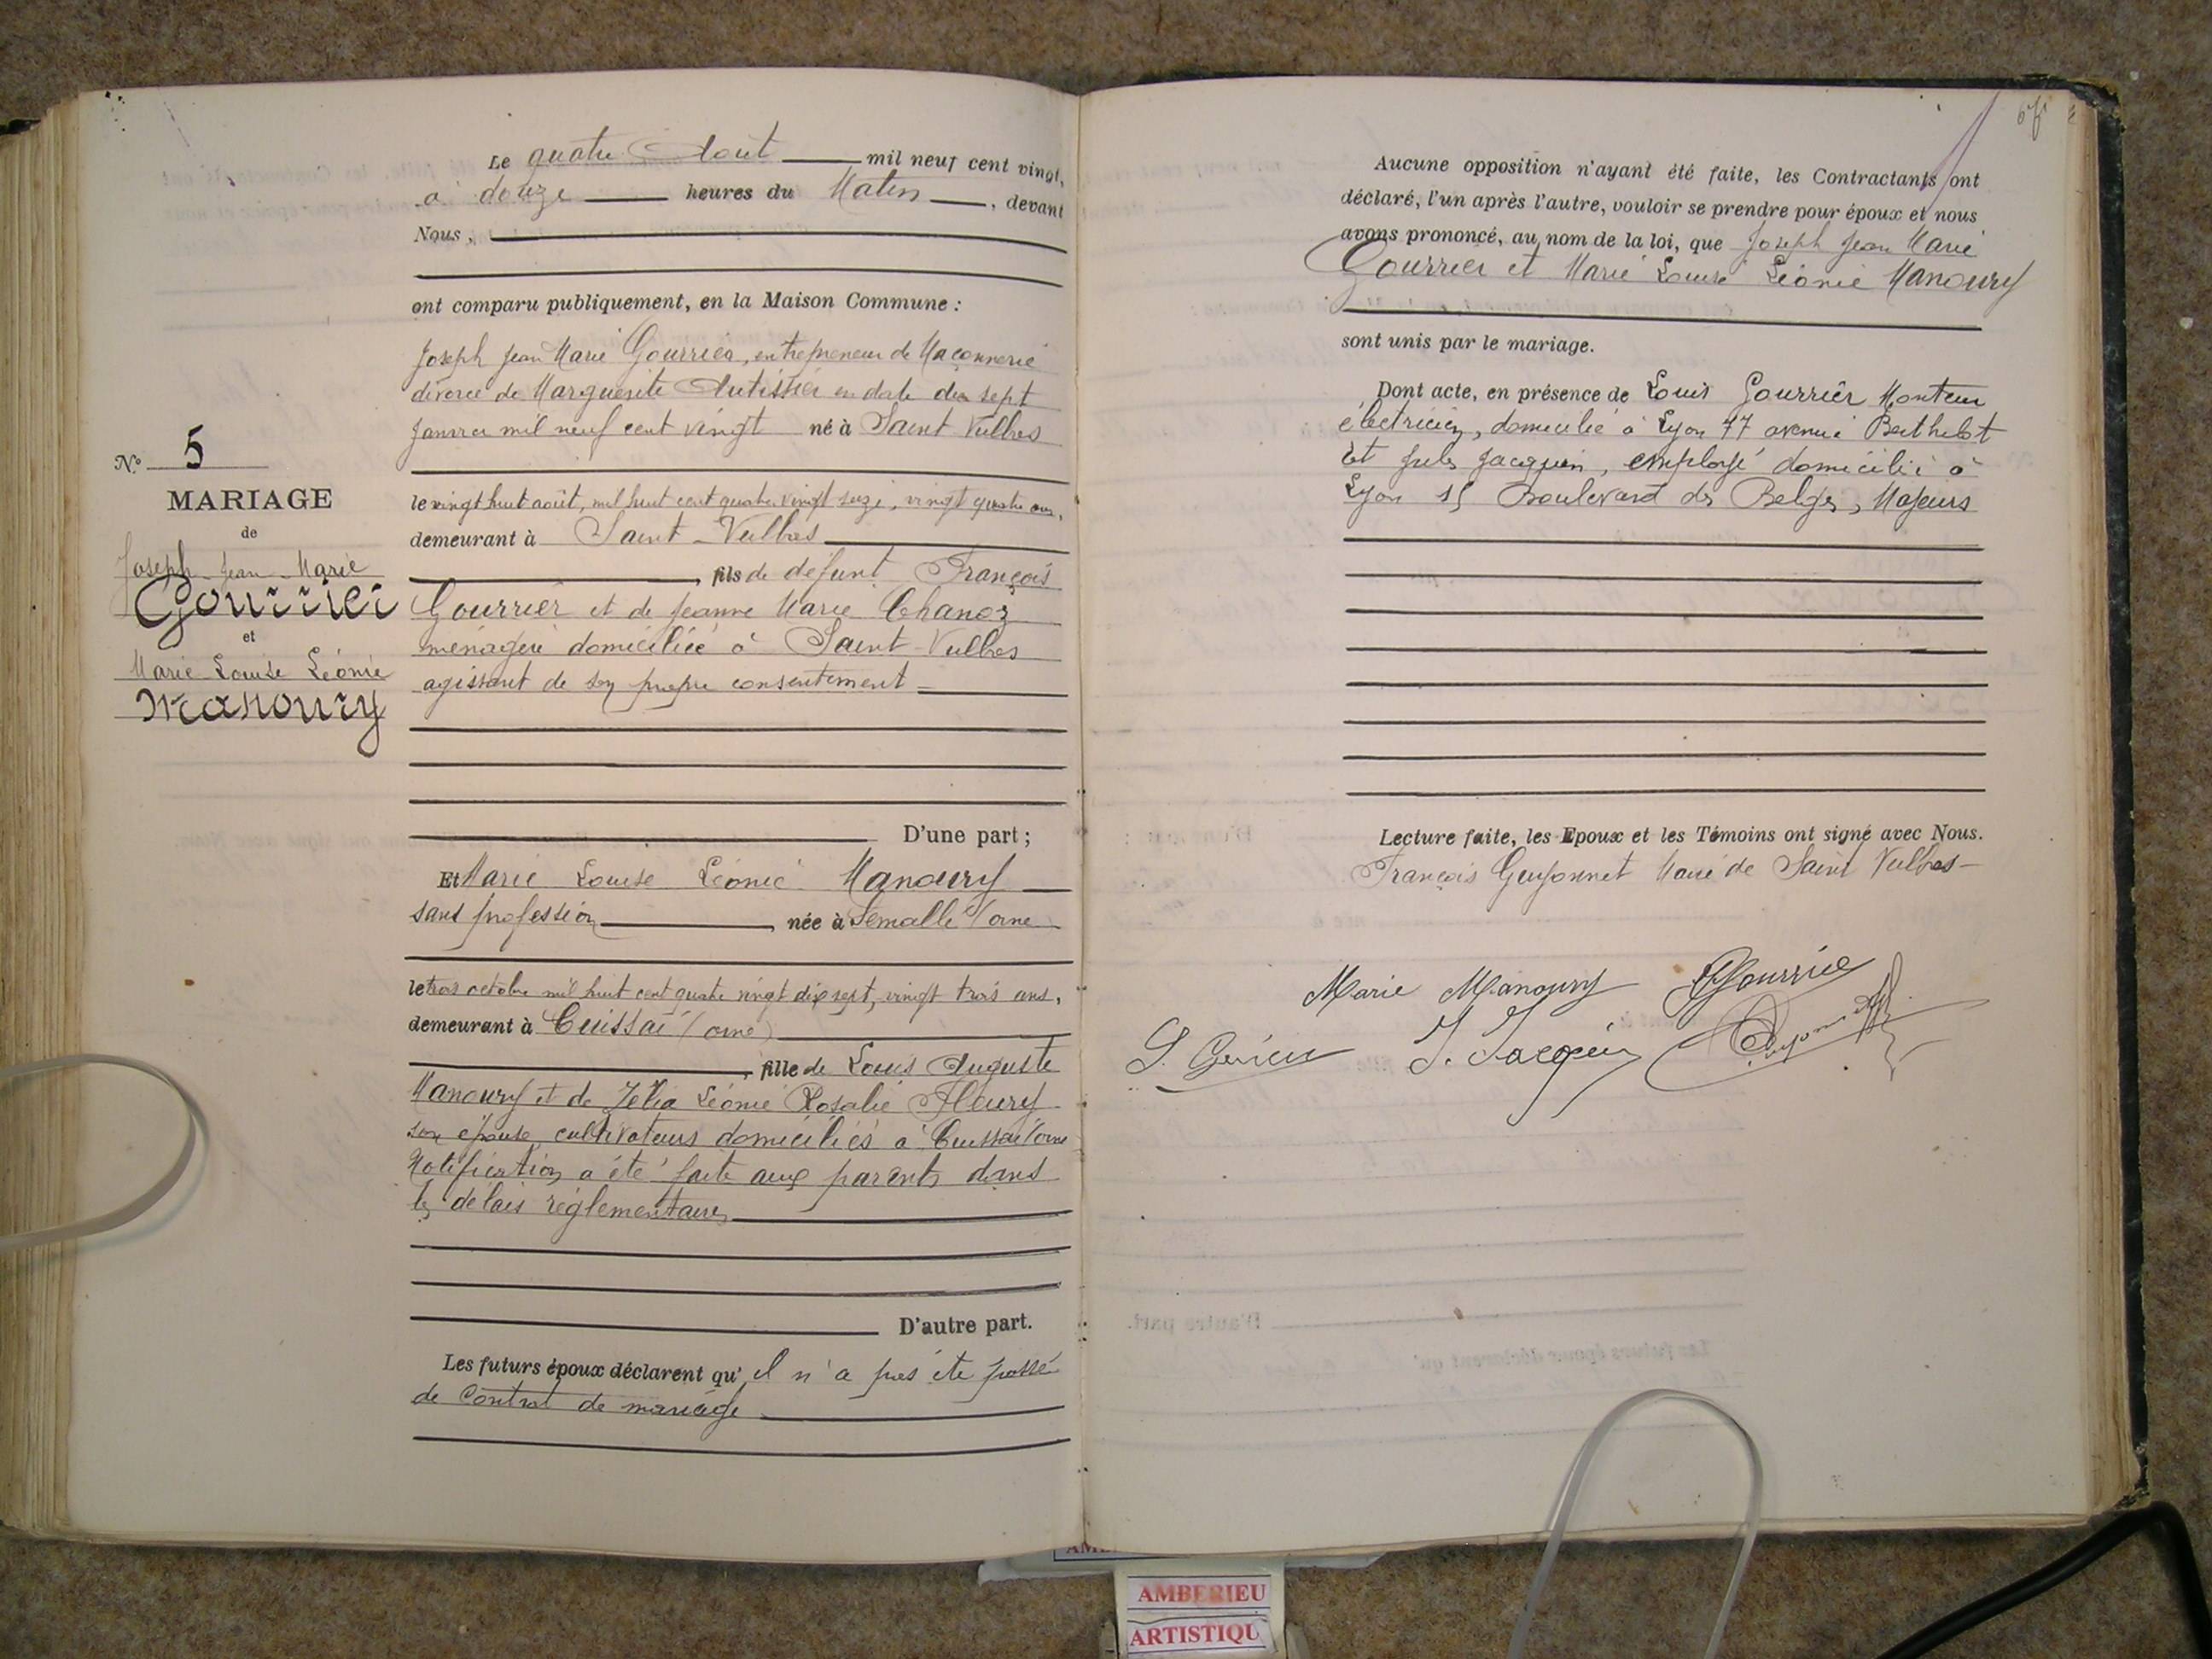 Le quatre Août mil neuf cent vingt,
à douze heures du Matin, devant
Nous,
ont comparu publiquement, en la Maison Commune :
Joseph Jean Marie Gourrier, entrepreneur de Maçonnerie
divorcé de Marguerite Autissier en date du sept
Janvier mil neuf cent vingt né à Saint Vulbas
le vingt huit août, mil huit cent quatre vingt seize, vingt quatre ans,
demeurant à Saint-Vulbas
, fils de défunt François
Gourrier et de Jeanne Marie Chanoz
ménagère domiciliée à Saint-Vulbas
agissant de son propre consentement
D'une part ;
Et Marie Louise Léonie Manoury
sans profession, née à Semallé (orne
le trois octobre mil huit cent quatre vingt dix sept, vingt trois ans,
demeurant à Cuissai (orne)
, fille de Louis Auguste
Manoury et de Zélia Léonie Rosalie Fleury
son épouse, cultivateurs domiciliés à Cuissai (orne
Notification a été faite aux parents dans
les délais réglementaires
D'autre part.
Les futurs époux déclarent qu'il n'a pas été passé
de Contrat de mariage
N° 5
MARIAGE
de
Joseph Jean Marie
Gourrier
et
Marie Louise Léonie
Manoury
Aucune opposition n'ayant été faite, les Contractants ont
déclaré, l'un après l'autre, vouloir se prendre pour époux et nous
avons prononcé, au nom de la loi, que Joseph Jean Marie
Gourrier et Marie Louise Léonie Manoury
sont unis par le mariage.
Dont acte, en présence de Louis Gourrier Monteur
électricien, domicilié à Lyon 77 avenue Berthelot
et Jules Jacquin, employé domicilié à
Lyon 15 Boulevard des Belges, Majeurs
Lecture faite, les Epoux et les Témoins ont signé avec Nous.
François Guyonnet Maire de Saint Vulbas
Marie Manoury Gourrier
J. Jacquin Guyonnet
AMBERIEU
ARTISTIQU